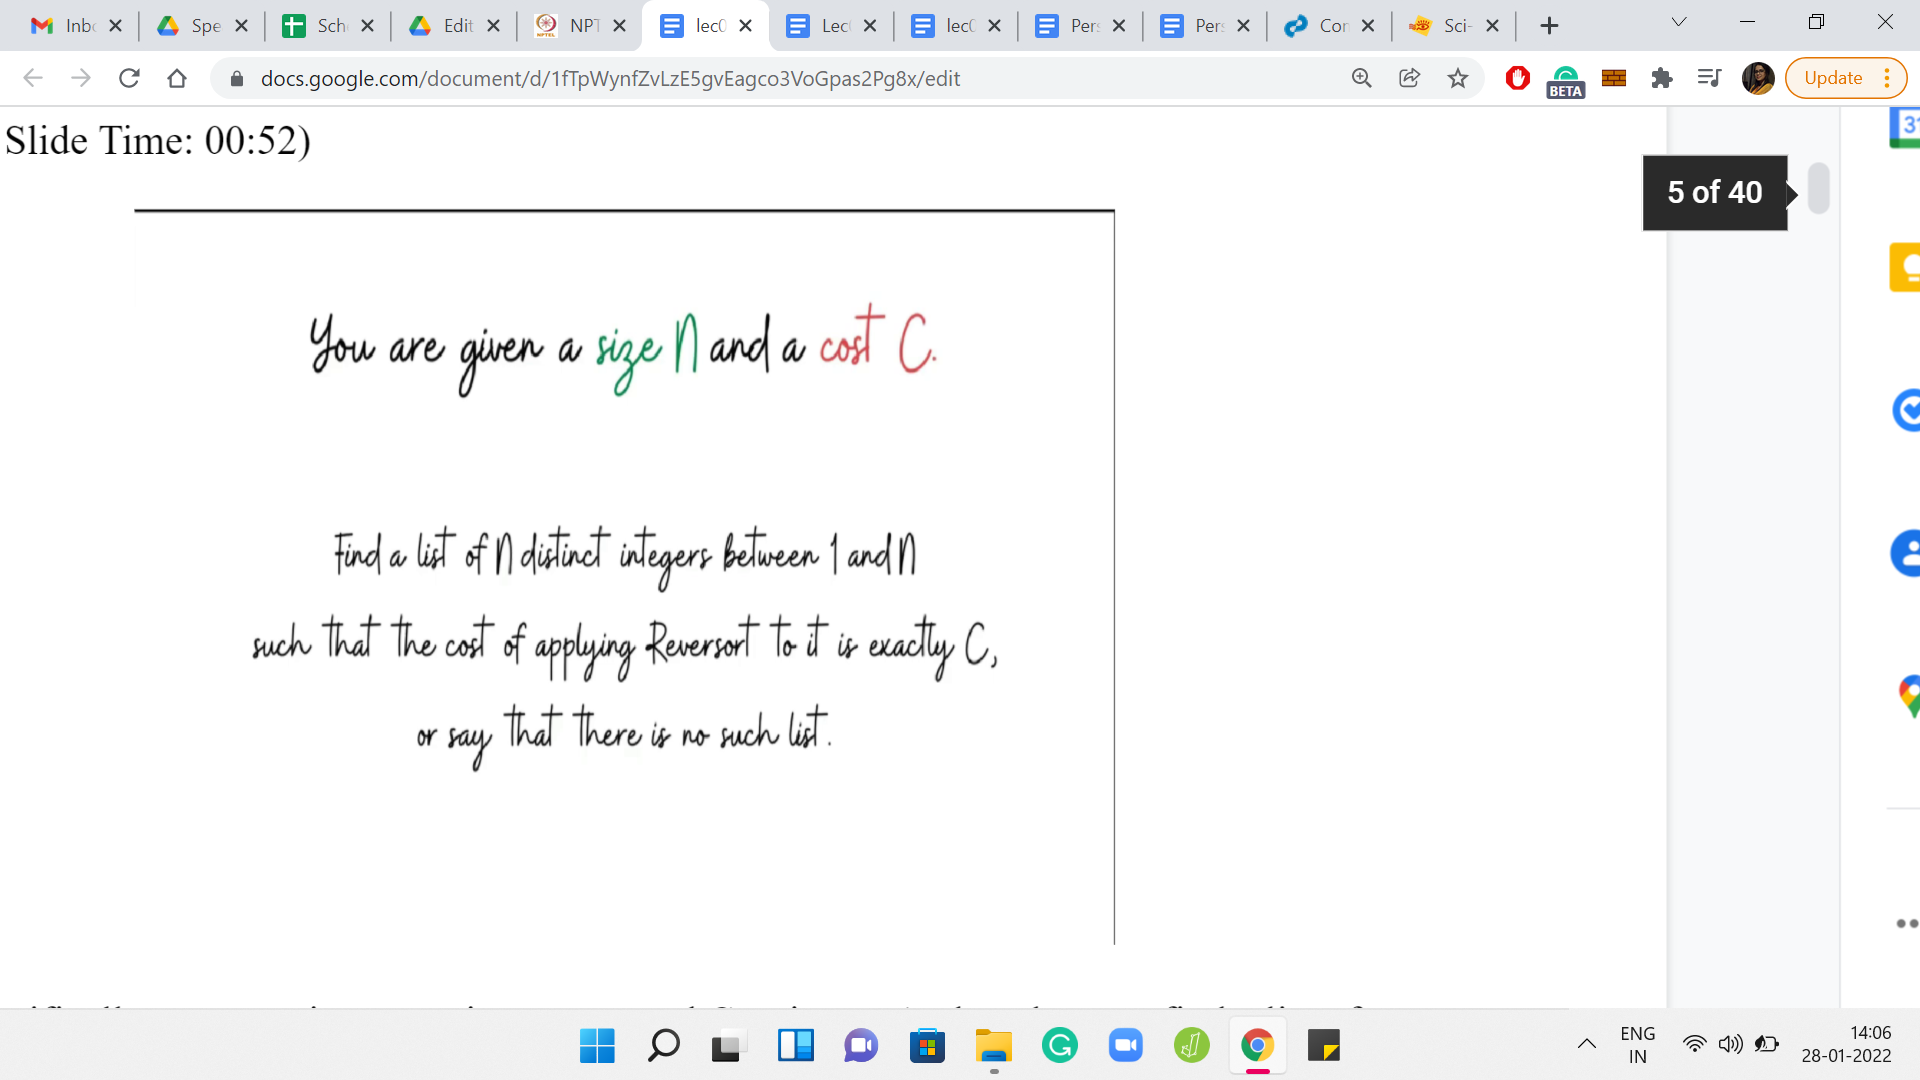 Inbc
Spe
Sch
Edit
NPT
lec0
Lec
lec0
Per
Per
Con
Sci-
docs.google.com/document/d/1fTpWynfZvLzE5gvEagco3VoGpas2Pg8x/edit
BETA
Update
Slide Time: 00:52)
31
5 of 40
You are given a size N and a cost C.
Find a list of N distinct integers between 1 and N
such that the cost of applying Reversort to it is exactly C,
or say that there is no such list.
ENG
IN
14:06
28-01-2022